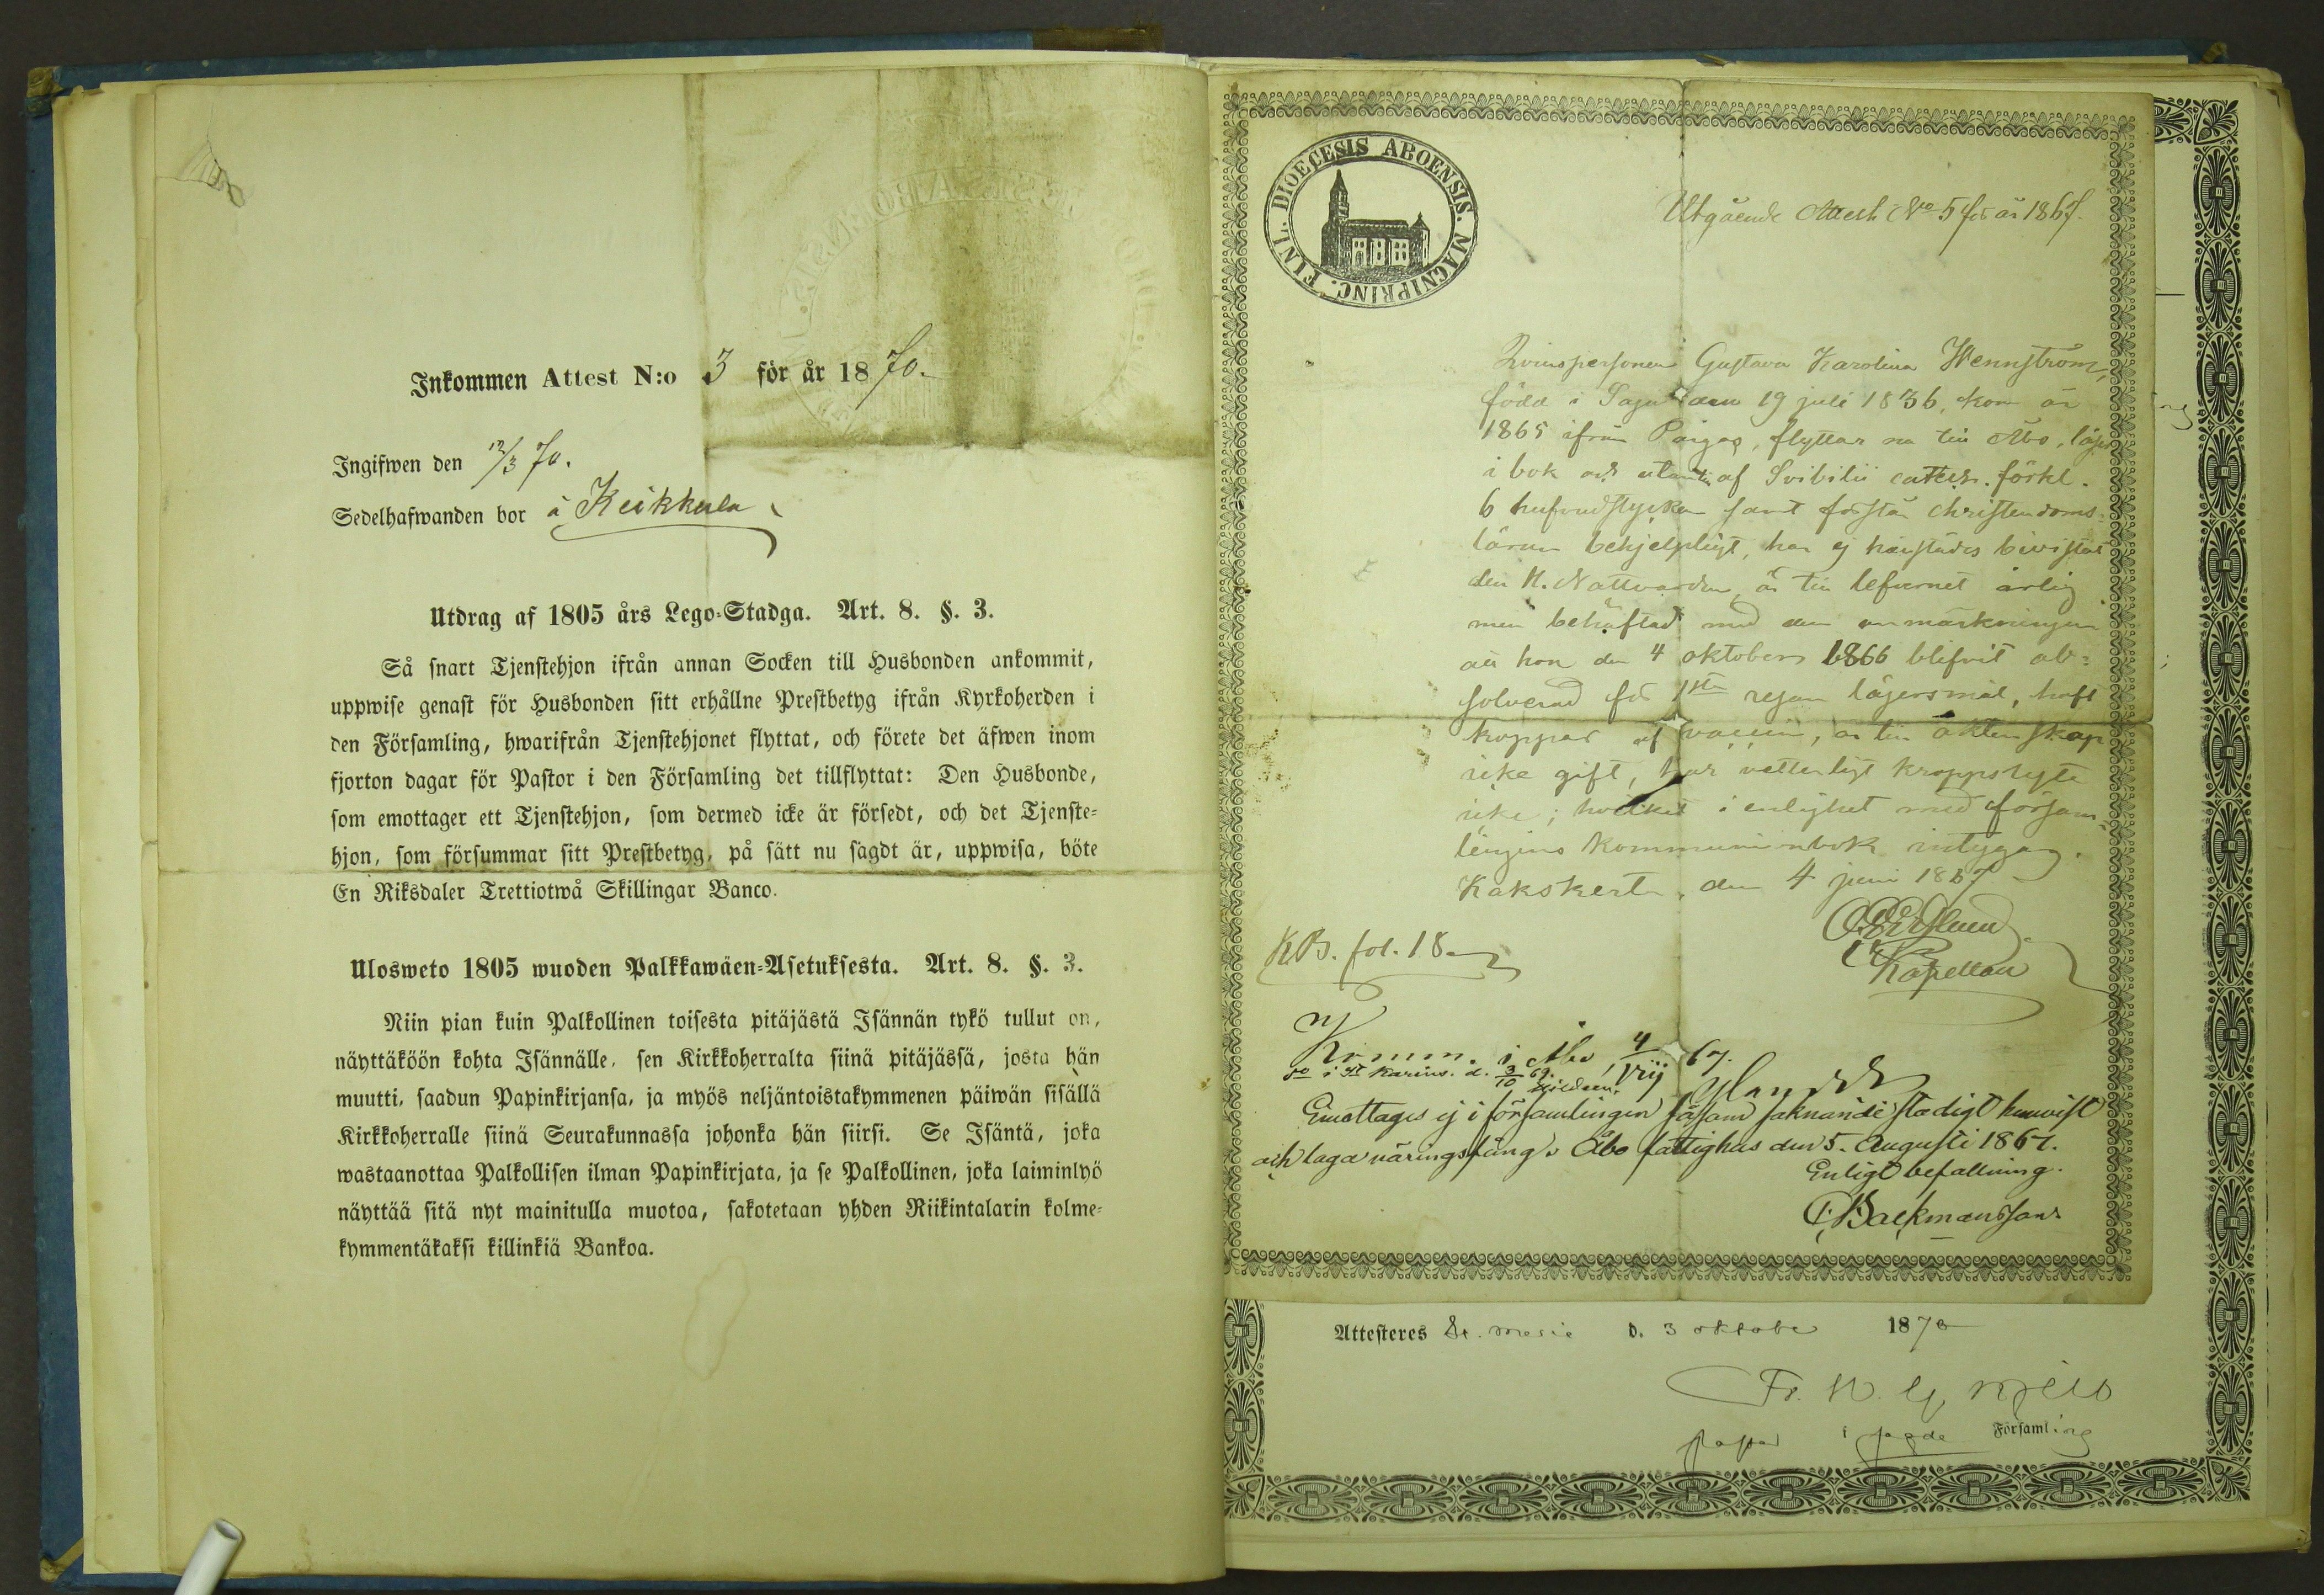 Inkommen Attest N:o 3 för år 1870.
Ingifwen den 12/3 70.
Sedelhafwanden bor å Keikkula
Utdrag af 1805 års Lego-Stadga. Art. 8. §. 3.
Så snart Tjenstehjon ifrån annan Socken till Husbonden ankommit,
uppwise genast för Husbonden sitt erhållne Prestbetyg ifrån Kyrkoherden i
den Församling, hwarifrån Tjenstehjonet flyttat, och förete det äfwen inom
fjorton dagar för Pastor i den Församling det tillflyttat: Den Husbonde,
som emottager ett Tjenstehjon, som dermed icke är försedt, och det Tjenste-
hjon, som försummar sitt Prestbetyg, på sätt nu sagdt är, uppwisa, böte
En Riksdaler Trettiotwå Skillingar Banco.
Ulosweto 1805 wuoden Palkkawäen-Asetuksesta. Art. 8. §. 3.
Niin pian kuin Palkollinen toisesta pitäjästä Isännän tykö tullut on,
näyttäköön kohta Isännälle, sen Kirkkoherralta siinä pitäjässä, josta hän
muutti, saadun Papinkirjansa, ja myös neljäntoistakymmenen päiwän sisällä
Kirkkoherralle siinä Seurakunnassa johonka hän siirsi. Se Isäntä, joka
wastaanottaa Palkollisen ilman Papinkirjata, ja se Palkollinen, joka laiminlyö
näyttää sitä nyt mainitulla muotoa, sakotetaan yhden Riikintalarin kolme-
kymmentäkaksi killinkiä Bankoa.
DIOECESIS ABOENSIS. MAGNIPRINC. FINL.
Utgående Attest No 5 för år 1867.
Qvinspersonen Gustava Karolina Wennström,
född i Sagu den 19 juli 1836, kom år
1865 ifrån Pargas, flyttar nu till Åbo, läser
i bok och utantill af Svibilii cateches. förkl.
6 hufvudstycken samt förstår christendoms-
läran behjelpligt, har ej härstädes bevistat
den H. Nattvarden, är till lefvernet ärlig
men behäftad med den anmärkningen
att hon den 4 oktober 1866 blifvit ab-
solverad för 1sta resan lägersmål, haft
koppor af vaccin, är till äktenskap
icke gift, har vetterligt kroppslyte
icke; hvilket i enlighet med försam-
lingens kommunionbok intygas.
Kakskerta, den 4 juni 1867
Kapellan
K.B. fol. 18
i Åbo 4/VII 67.
i St Karins. d. 3/10 69.
Emottages ej i församlingen såsom saknande stadigt hemvist
och laga näringsfång. Åbo fattighus den 5. Augusti 1867.
Enligt befallning.
Backmansson
Attesteres St. Marie d. 3 oktober 1870
Fr. W. G. Hjelt
pastor i sagde Församling